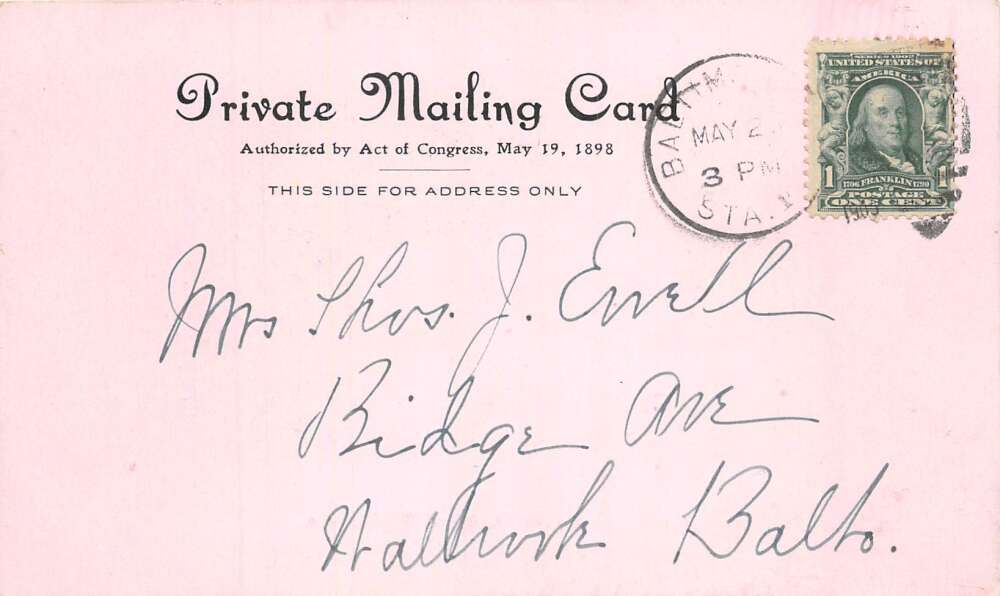 Private Mailing Card
Authorized by Act of Congress, May 19, 1898
THIS SIDE FOR ADDRESS ONLY
BALTIM
MAY 2
3 PM
STA. 1
SERIES 1902
UNITED STATES OF
AMERICA
1 1
1706 FRANKLIN 1790
POSTAGE
ONE CENT
Mrs Thos. J. Ewell
Ridge Ave
Walbrook Balto.